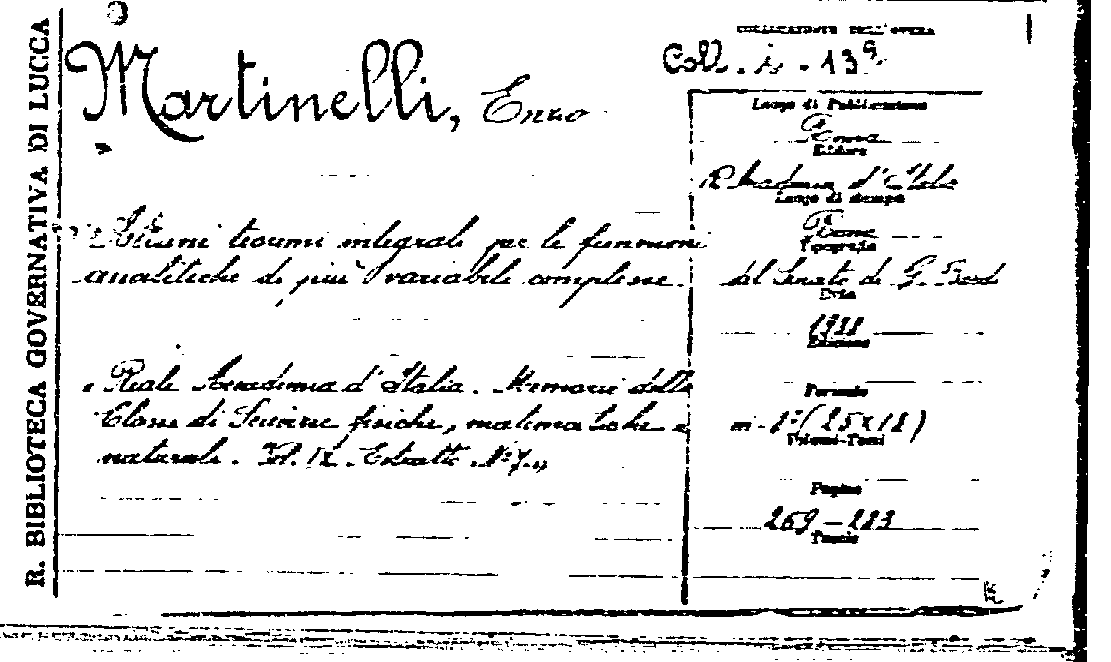 R. BIBLIOTECA GOVERNATIVA DI LUCCA
COLLOCAZIONE DELL'OPERA
Coll. i - 13 a
Martinelli, Enzo
Alcuni teoremi integrali per le funzioni
analitiche di più variabili complesse.
« Reale Accademia d'Italia. Memorie della
Classe di Scienze fisiche, matematiche e
naturali. Vol. IX. Estratto N° 7. »
Luogo di Pubblicazione
Roma
Editore
R. Accademia d'Italia
Luogo di stampa
Roma
Tipografia
del Senato di G. Bardi
Data
1938
Edizione
Formato
in - 8° (25x18)
Volumi-Tomi
Pagine
269 - 283
Tavole